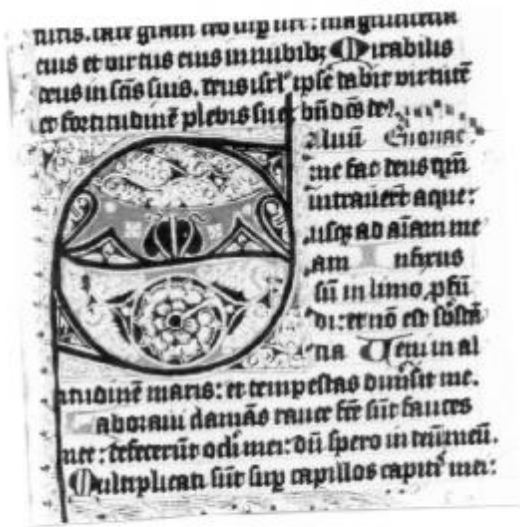 eius et virtus eius in nubib; Mirabilis
deus in scīs suis. deus isrl' ipse dabit virtutē
et fortitudinē plebis sue bn̄ds de9
S aluū
me fac deus qm̄
intrauerūt aque:
usq; ad aīam me
am Infixus
sū in limo pfū
di: et nō est sbstā
tia Veni in al
titudinē maris: et tempestas dim̄sit me.
Laboraui clamās rauce fcē sūt fauces
mee: defecerūt ocli mei: dū spero in deū meū.
Multiplicati sūt sup capillos capit' mei: